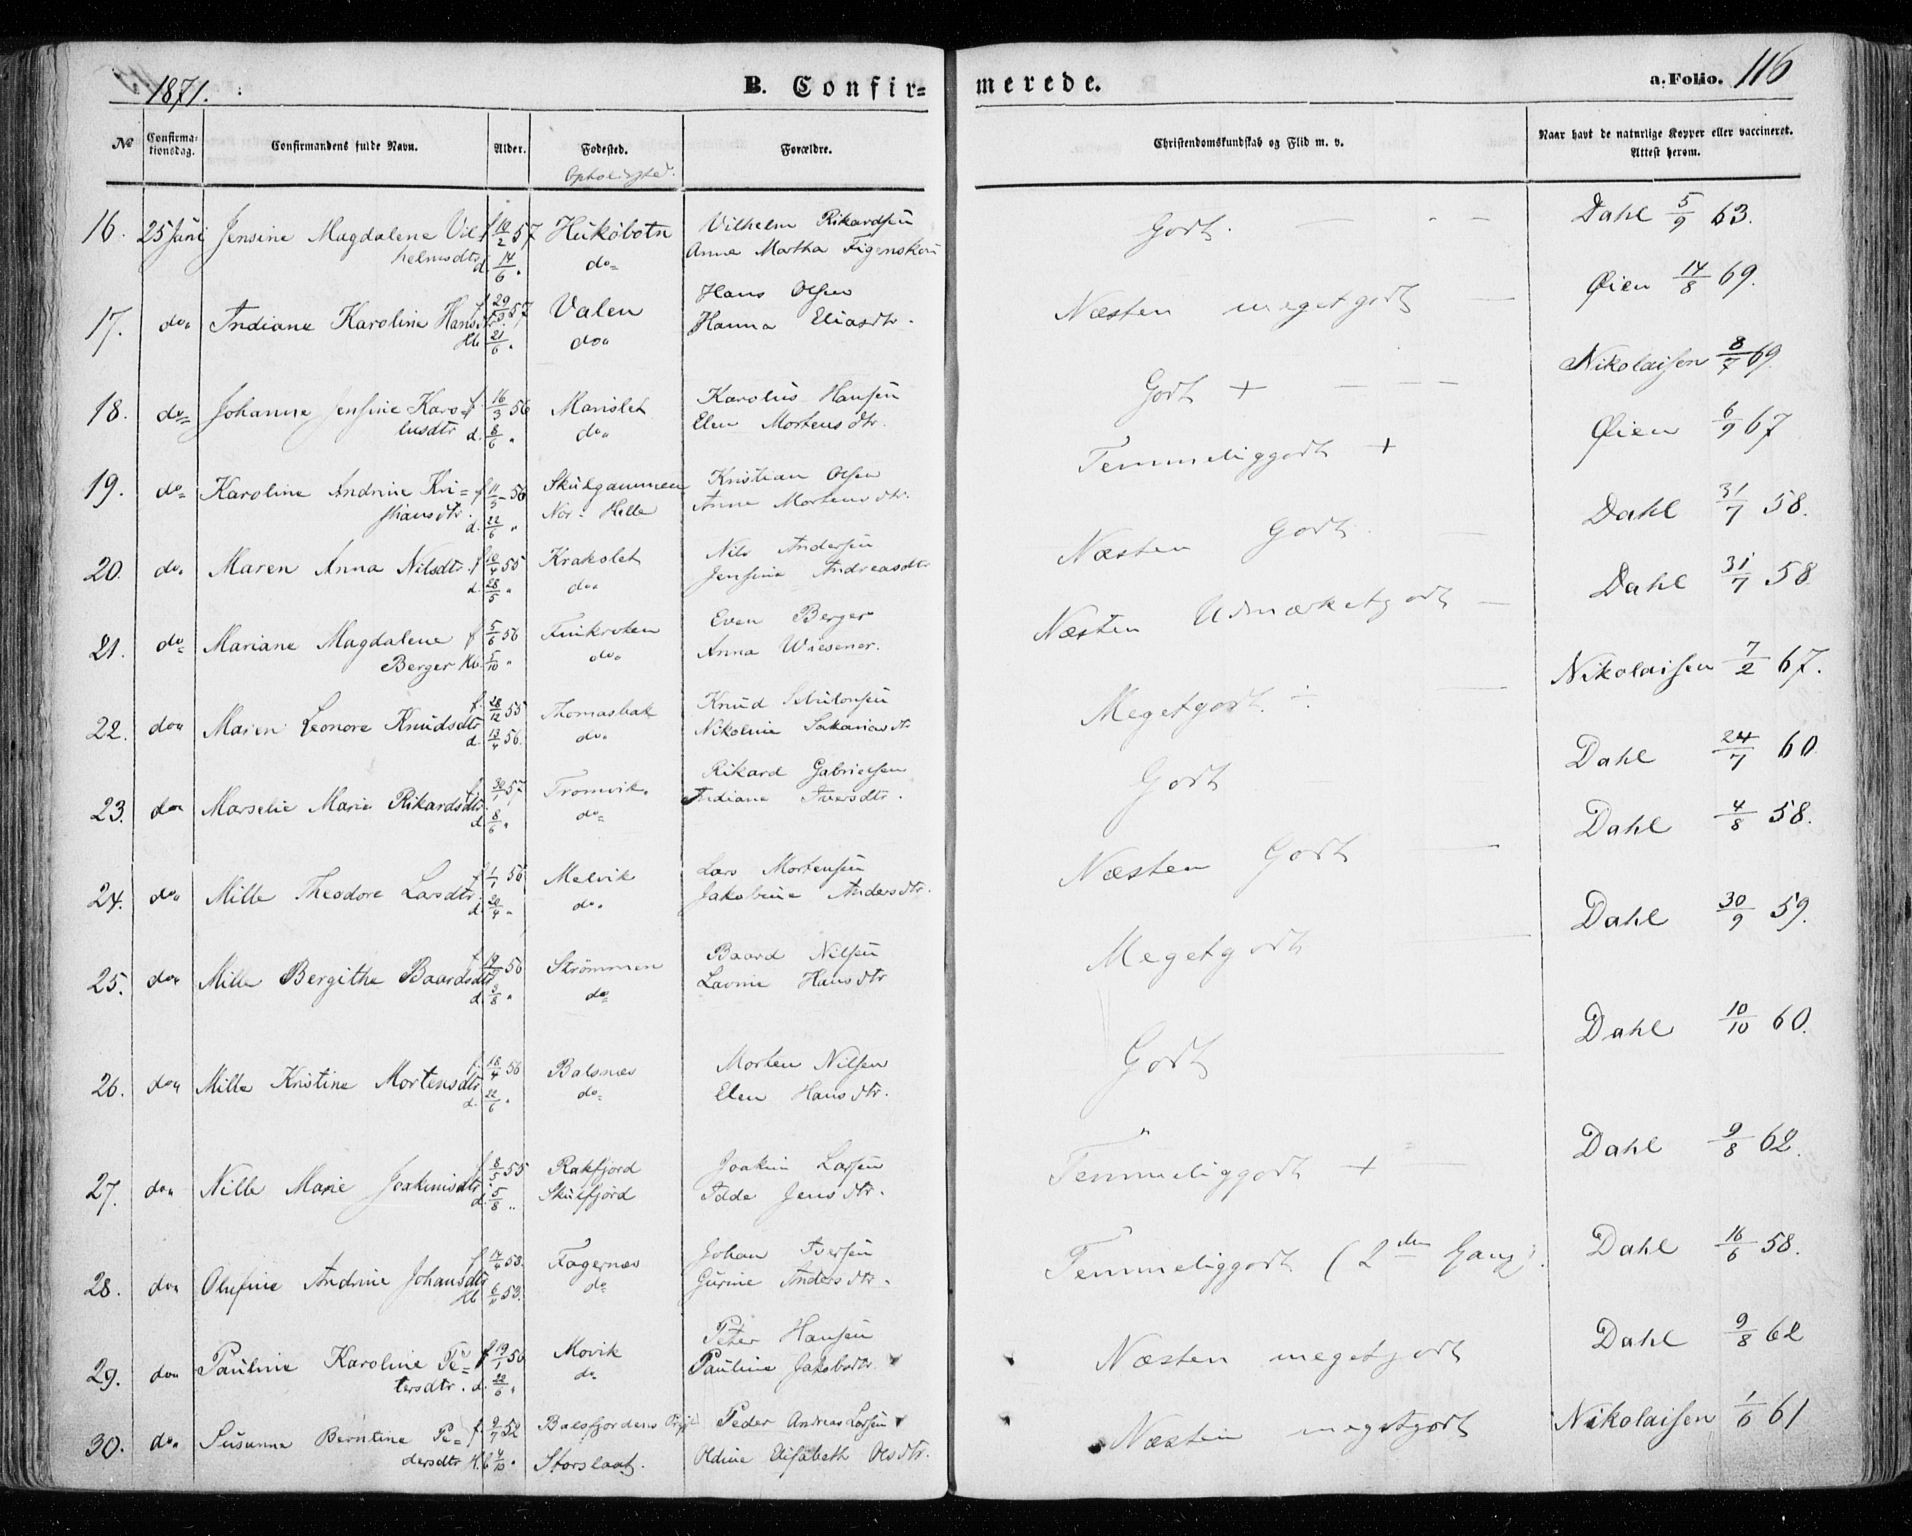 1871.
B. Confir=
merede.
a. Folio. 116
No
Confirma-
tionsdag.
Confirmandens fulde Navn.
Alder.
Fodested.
Opholdssted.
Forældre.
Christendomskundskab og Flid m. v.
Naar havt de naturlige Kopper eller vaccineret.
Attest herom.
16. 25 Juni Jensine Magdalene Vil- f 57 Vilhelm Rikardsen Godt. Dahl 5/9 63.
helmsdtr d. 14/6 " do= Anne Martha Figenskou
17. do" Indiane Karoline Hansdtr. f 29/3 57 Valen Hans Olsen Næsten megetgodt Øien 14/8 69.
Hb 21/6 " do" Hanna Eliasdtr.
18. do= Johanne Jensine Karo- f 16/3 56 Karolus Hansen Godt + Nikolaisen 8/7 69.
lusdtr d. 8/6 " do" Elen Mortensdtr.
19. do= Karoline Andrine Kri= f 11/3 56 Skulgammen Kristian Olsen Temmeliggodt + Øien 6/9 67
stiansdtr. d. 22/6 " Nor: Helle Anne Mortensdtr.
20. do" Maren Anna Nilsdtr. f 10/4 55 Krakslet Nils Andersen Næsten Godt Dahl 31/7 58.
d. 28/5 " do" Jensine Andreasdtr
21. do= Mariane Magdalene f 5/6 56 Finkroken Even Berger Næsten Udmærketgodt Dahl 31/7 58
Berger Kv. 5/10 " do" Anna Wiesener.
22. do" Maren Leonore Knudsdtr f. 28/12 55 Thomasbak Knud Megetgodt ÷ Nikolaisen 7/2 67.
d. 13/4 56. do" Nikoline Sakariasdtr
23. do" Marselie Marie Rikardsdtr. f. 30/1 57 Tromvik. Rikard Gabrielsen Godt Dahl 24/7 60
d. 8/6 " do= Indiane Iversdtr.
24. do" Mille Theodore Larsdtr. f 1/1 56 Melvik Lars Mortensen Næsten Godt Dahl 4/8 58.
d. 20/4 " do" Jakobine Andersdtr.
25. do" Mille Bergithe Baardsdtr f 56 Strömmen Baard Nilsen Megetgodt Dahl 30/9 59.
d. 3/8 " do= Lavine Hansdtr
26. do" Mille Kristine Mortensdtr f. 18/4 56 Balsnæs Morten Nilsen Godt Dahl 10/10 60.
d. 22/6 " do= Elen Hansdtr.
27. do" Nille Marie Joakimsdtr. f 8/5 55 Rakfjord Joakim Larsen Temmeliggodt + Dahl 9/8 62.
d. 5/8 " Skulsfjord Idde Jensdtr.
28. do" Olufine Andrine Johansdtr f 14/4 53. Fagernæs Johan Iversen Temmeliggodt (2den Gang). Dahl 16/6 58.
Hb 53. do Gurine Andersdtr.
29. do" Pauline Karoline Pe= f 19/1 56 Movik Peter Hansen Næsten megetgodt Dahl 9/8 62
tersdtr. d. 22/6 " do Pauline Jakobsdtr
30. do" Susanne Berntine Pe= f. 9/7 52 Balsfjordens Prgjd Peder Andreas Larsen Næsten megetgodt Nikolaisen 1/6 61
dersdtr H.b 4/10 " Storslaat. Oldine Elisabeth Olsdtr.